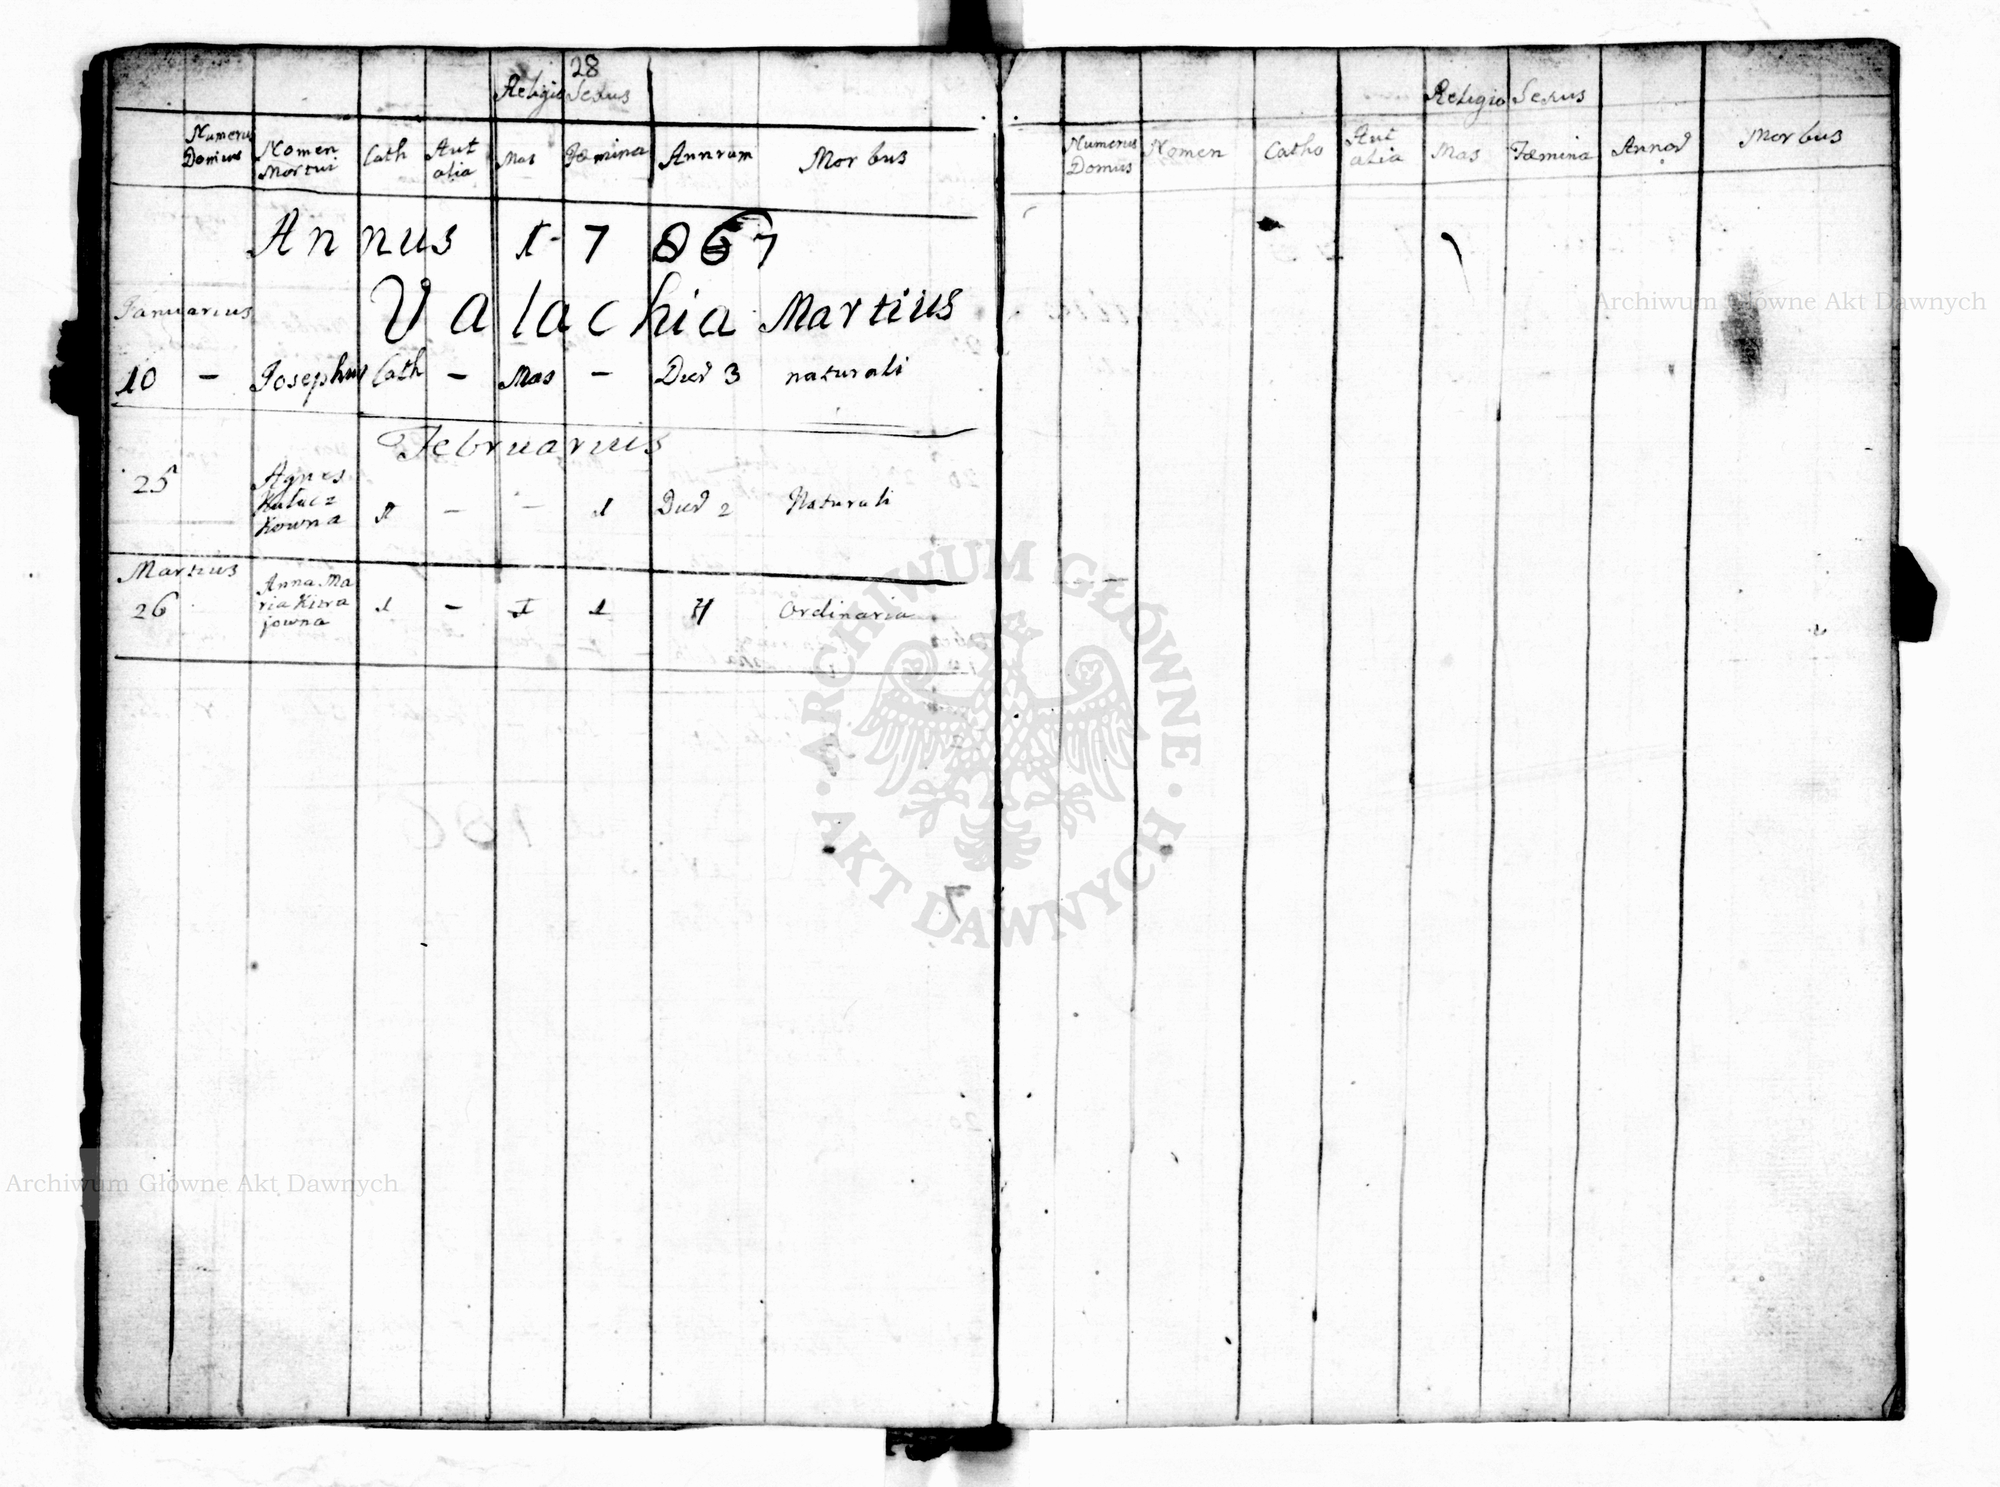 28
Religio Sexus
Numerus Domus Nomen Mortui Cath Aut alia Mas Fœmina Annrum Morbus
Annus 1787
Januarius Valachia Martius
10 – Josephus Cath – Mas – Dier 3 naturali
Februarius
25 Agnes
1 – – 1 Dier 2 Naturali
kowna
Martius Anna Ma
26 ria 1 – 1 1 4 Ordinaria
jowna
Religio Sexus
Numerus Domus Nomen Catho Aut alia Mas Fœmina Annor Morbus
7
ARCHIWUM GŁÓWNE AKT DAWNYCH
Archiwum Główne Akt Dawnych
Archiwum Główne Akt Dawnych